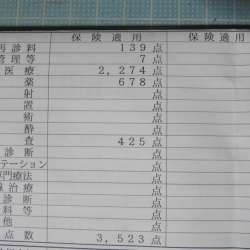 保険適用 保険適用
再診料 139 点
管理等 7 点
医療 2,274 点
薬 678 点
射 点
置 点
術 点
酔 点
査 425 点
診断 点
テーション 点
専門療法 点
線治療 点
診断 点
料等 点
他 点
点数 3,523 点